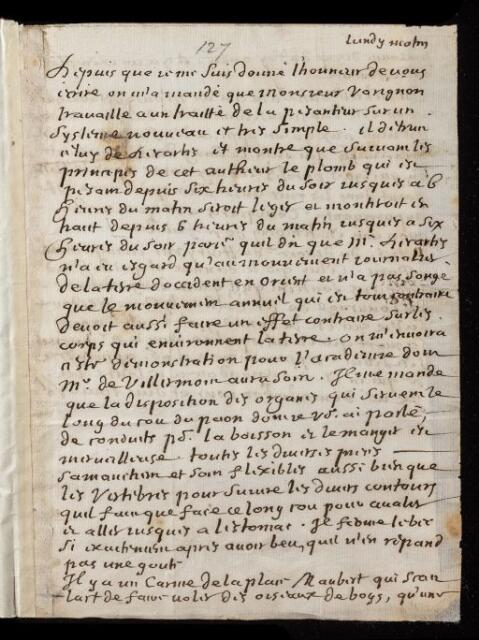 127
lundy matin
Depuis que je me suis donné l'honneur de vous
écrire on m'a mandé que monsieur Varignon
travaille a un traitté de la pesanteur sur un
systeme nouveau et tres simple. il détruit
celuy de Descartes et montre que suivant les
principes de cet autheur le plomb qui est
pesant depuis six heures du soir jusques a 6
heures du matin seroit leger et monteroit en
haut depuis 6 heures du matin jusques a six
heures du soir parce qu'il dit que Mr. Descartes
n'a eu esgard qu'au mouvement journalier
de la terre d'occident en orient et n'a pas songé
que le mouvement annuel qui est tout contraire
devoit aussi faire un effet contraire sur les
corps qui environnent la terre. on m'envoira
cette demonstration pour l'academie dont
Mr. de Villermont aura soin. Il me mande
que la disposition des organes qui servent le
long du cou du paon dont je vs. ai parlé,
de conduits pr. la boisson et le manger est
merveilleuse. toutes les diverses pieces
s'amanchent et sont flexibles aussi bien que
les vertebres pour suivre les divers contours
qu'il faut que face ce long cou pour avaler
et aller jusques a l'estomac. Il ferme le bec
si exactement apres avoir beu, qu'il n'en répand
pas une goute
Il y a un Carme de la place Maubert qui
l'art de faire voler des oiseaux de boys, qu'une